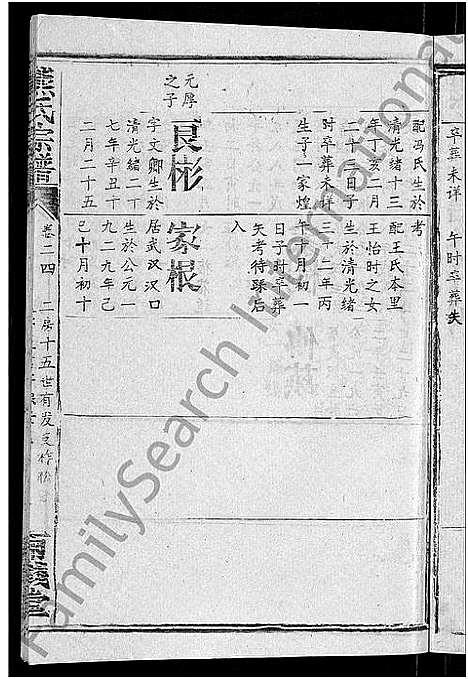 卒葬未详　午时卒葬失
配冯氏生於
清光绪十三
年丁亥二月
二十三日子
时卒葬未详
生子一家煌
元厚之子
良彬
字文卿生於
清光绪二十
七年辛丑十
二月二十五
考
配王氏本里
王怡时之女
生於清光绪
三十二年丙
午十月初一
日子时卒葬
失考待琢后
入
家根
居武汉汉口
生於公元一
九二九年己
巳十月初十
氏宗譜
卷二四
二房十五世有发支
義堂
FamilySearch International